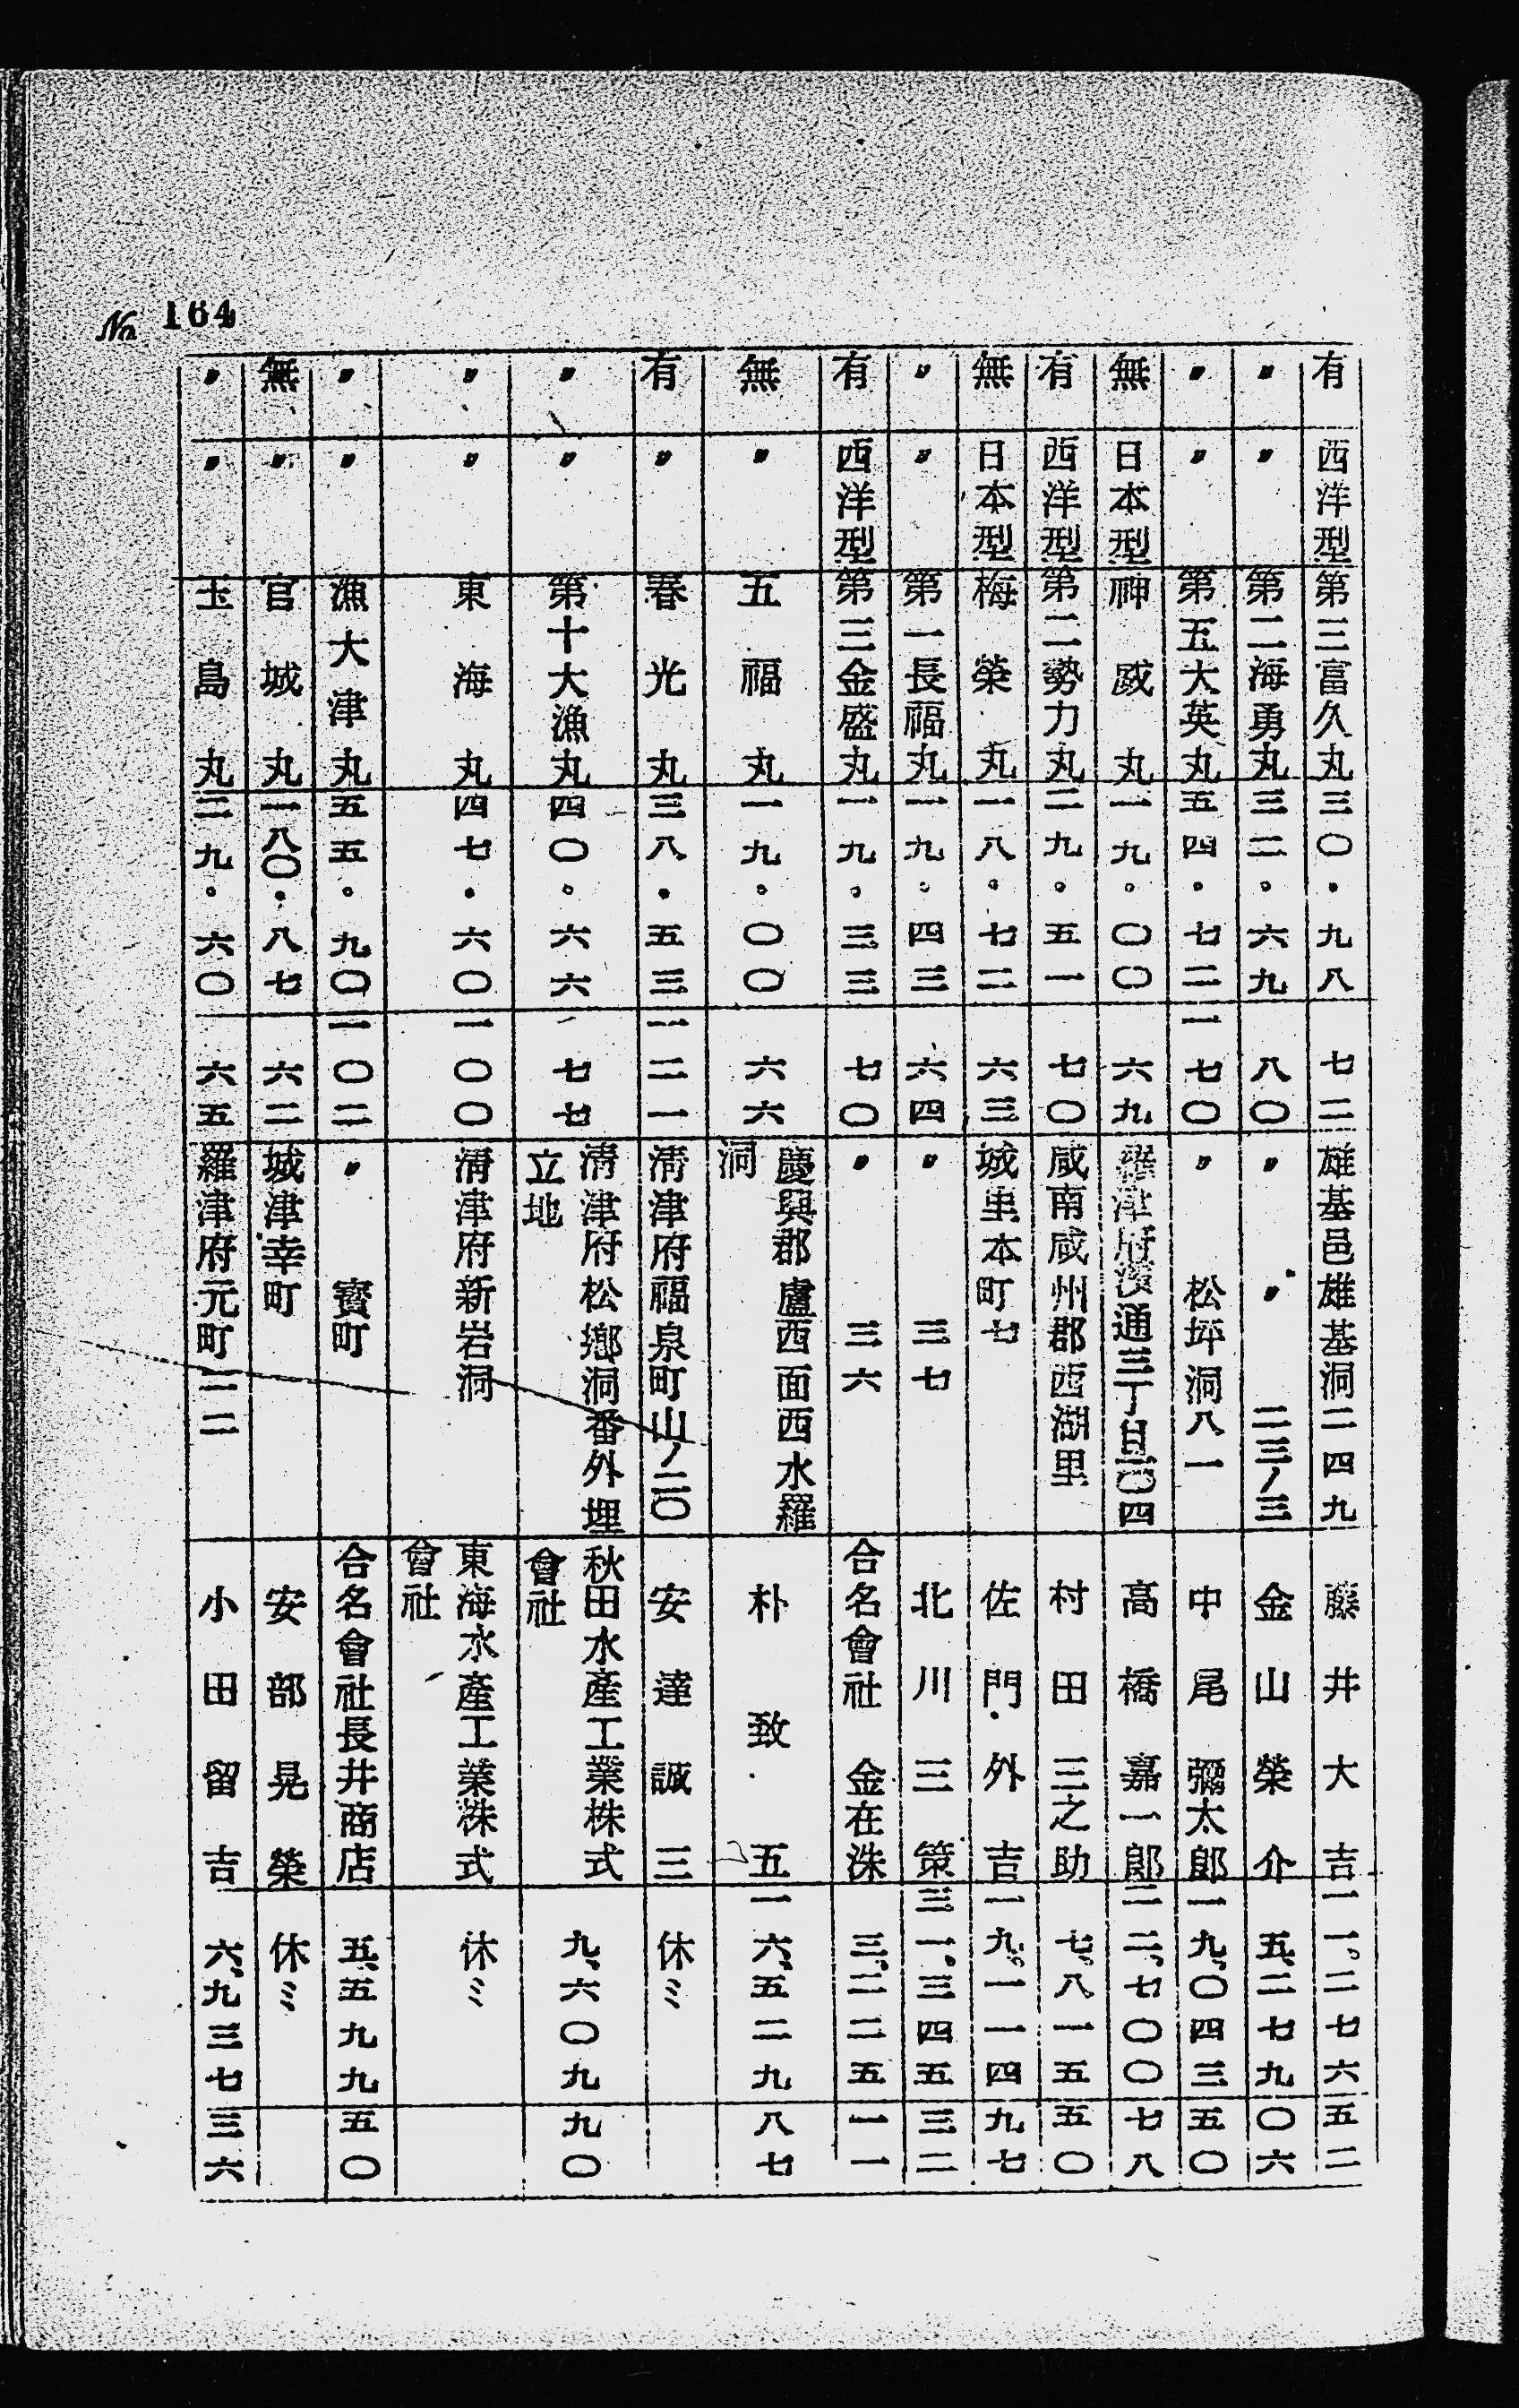 No 164
有 西洋型 第三富久丸 三〇.九八 七二 雄基邑雄基洞二四九 藤井大吉 一一。二七六五二
〃 〃 第二海勇丸 三二。六九 八〇 〃 〃 二三ノ三 金山榮介 五、二七九〇六
〃 〃 第五大英丸 五四。七二 一七〇 〃 松坪洞八一 中尾彌太郎 一九、〇四三五〇
無 日本型 神威丸 一九。〇〇 六九 羅津府濱通三丁目三〇四 高橋嘉一郎 二二、七〇〇七八
有 西洋型 第二勢力丸 二九。五一 七〇 咸南咸州郡西湖里 村田三之助 七、八一五五〇
無 日本型 梅榮丸 一八。七二 六三 城里本町七 佐門外吉 一九。一一四九七
〃 〃 第一長福丸 一九.四三 六四 〃 三七 北川三策 三一。三四五三二
有 西洋型 第三金盛丸 一九。三三 七〇 〃 三六 合名會社 金在洙 三、二二五一一
無 〃 五福丸 一九。〇〇 六六 慶興郡盧西面西水羅洞 朴致五 一六、五二九八七
有 〃 春光丸 三八.五三 一二一 清津府福泉町山ノ二〇 安達誠三 休ミ
〃 〃 第十大漁丸 四〇。六六 七七 清津府松鄕洞番外埋立地 秋田水產工業株式會社 九、六〇九九〇
〃 〃 東海丸 四七.六〇 一〇〇 清津府新岩洞 東海水產工業株式會社 休ミ
〃 〃 漁大津丸 五五。九〇 一〇二 〃 寳町 合名會社長井商店 五、五九九五〇
無 〃 官城丸 一八〇.八七 六二 城津幸町 安部晃榮 休ミ
〃 〃 玉島丸 二九。六〇 六五 羅津府元町二二 小田留吉 六、九三七三六